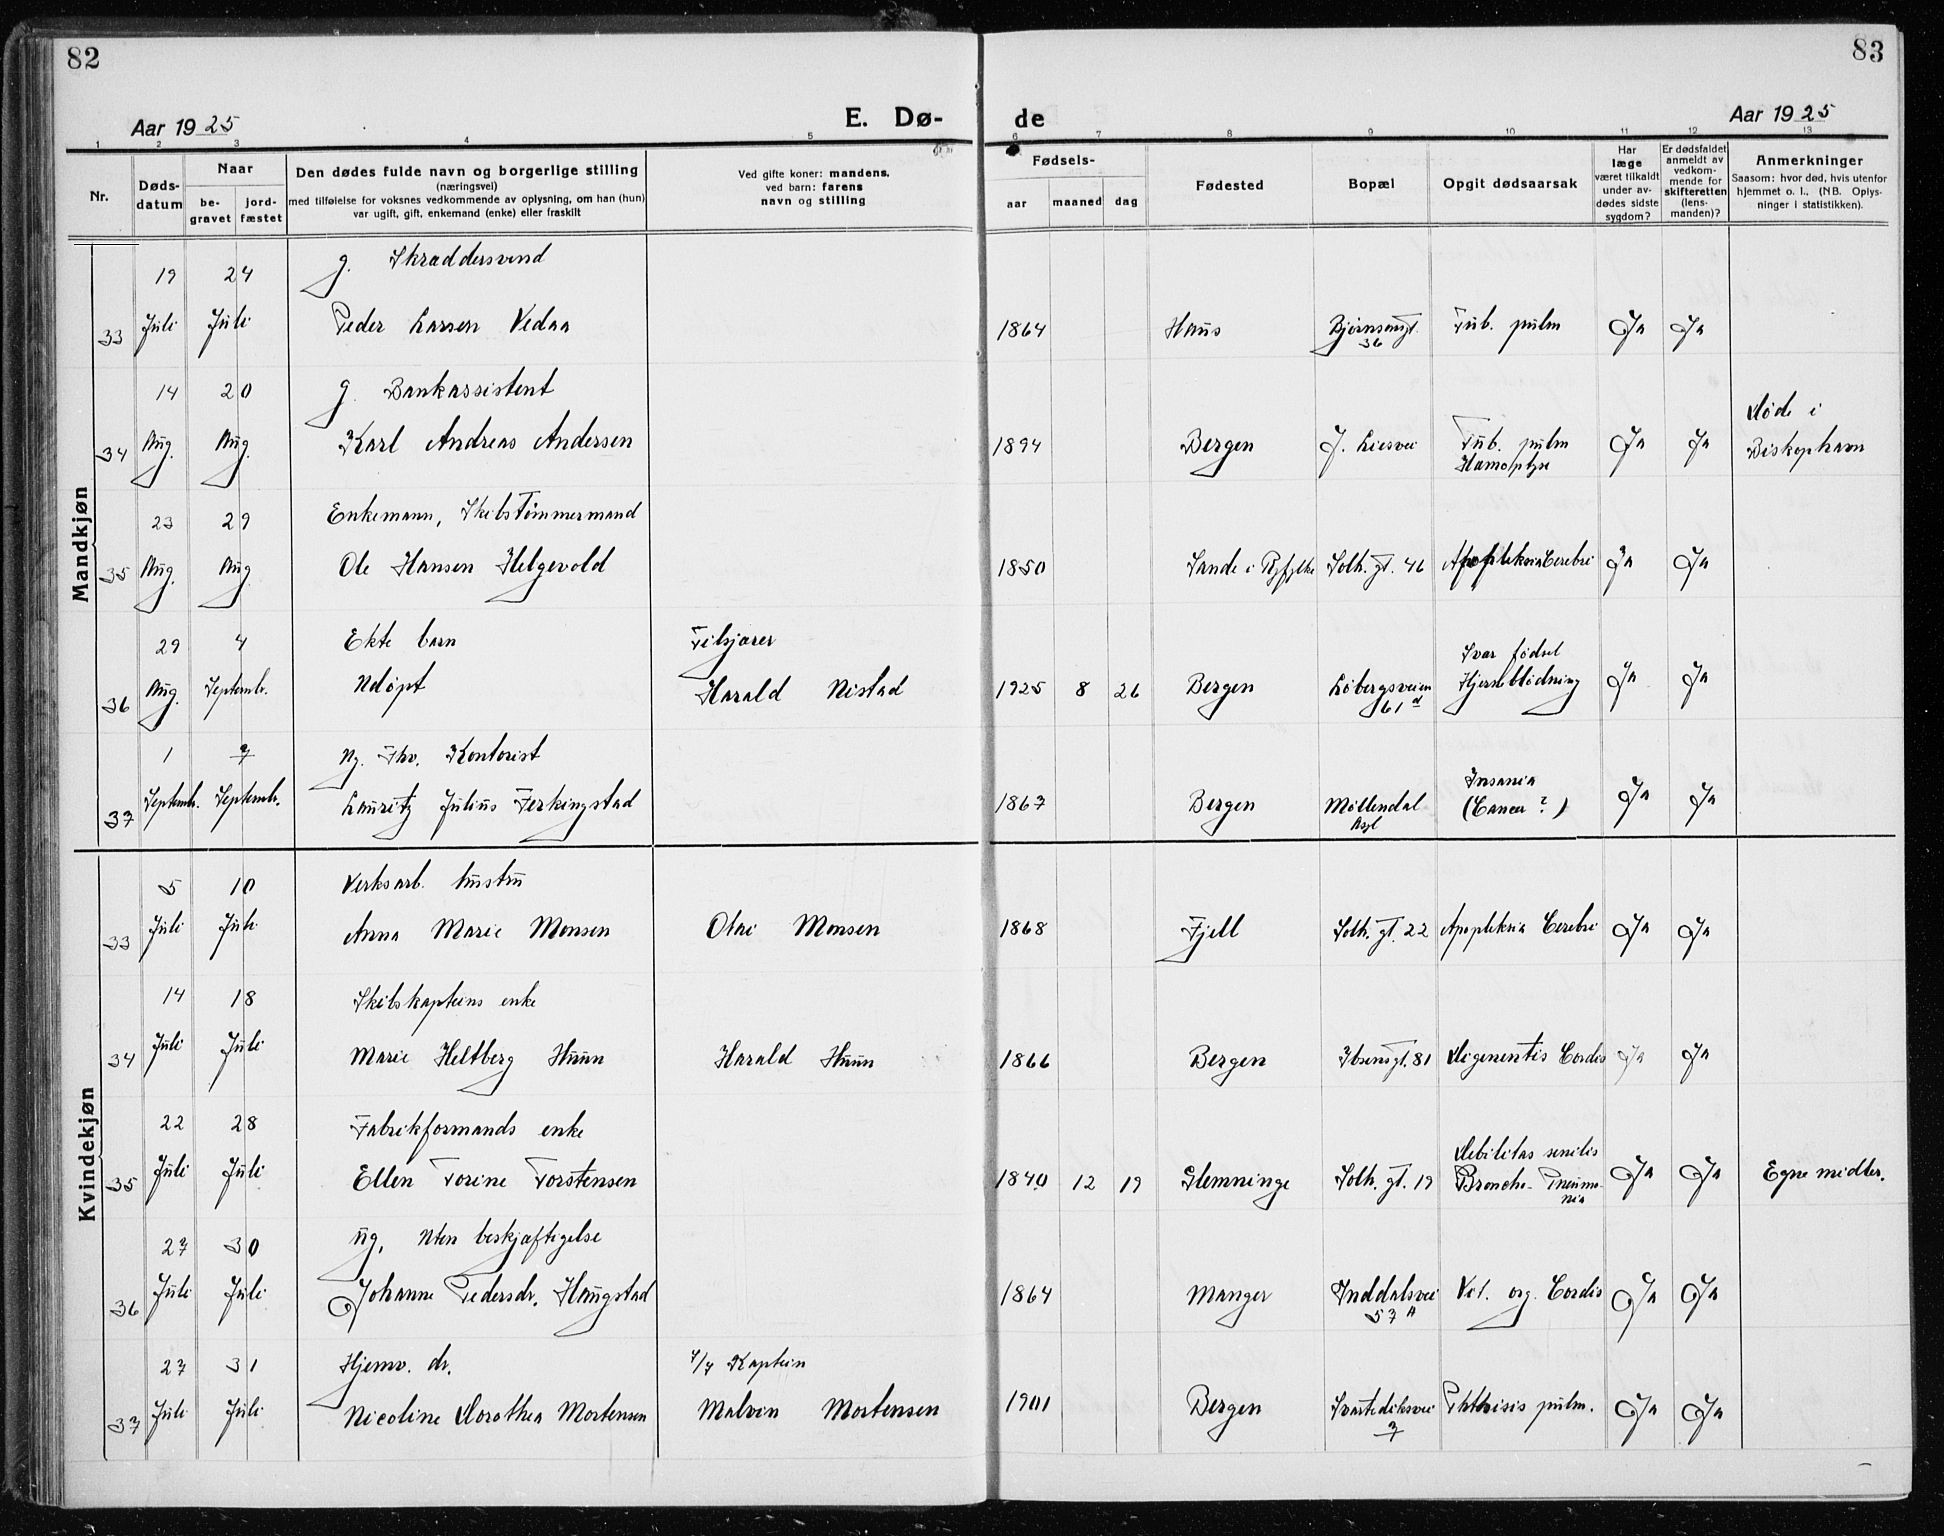 82
83
Aar 1925
E. Dø-
de
Aar 1925
1 2 3 4 5 6 7 8 9 10 11 12 13
Nr.
Døds-
datum
Naar
be-
gravet
jord-
fæstet
Den dødes fulde navn og borgerlige stilling
(næringsvei)
med tilføielse for voksnes vedkommende av oplysning, om han (hun)
var ugift, gift, enkemand (enke) eller fraskilt
Ved gifte koner: mandens.
ved barn: farens
navn og stilling
Fødsels-
aar
maaned
dag
Fødested
Bopæl
Opgit dødsaarsak
Har
læge
været tilkaldt
under av-
dødes sidste
sygdom?
Er dødsfaldet
anmeldt av
vedkom-
mende for
skifteretten
(lens-
manden)?
Anmerkninger
Saasom: hvor død, hvis utenfor
hjemmet o. l., (NB. Oplys-
ninger i statistikken).
Mandkjøn
19 24 g. Skraddersvend
33 Juli Juli Peder Larsen Vedaa 1864 Haus Bjørnsonsgt. Tub. pulm Ja Ja
36
14 20 g. Bankassistent
Døde i
34 Aug. Aug. Karl Andreas Andersen 1894 Bergen J. Liesvei Tub. pulm Ja Ja Biskophavn
Hæmoptyse
23 29 Enkemann, Skibstømmermand
35 Aug. Aug. Ole Hansen Helgevold 1850 Sande i Ryfylke Solh. gt. 46 Apopleksia Cerebri Ja Ja
29 4 Ekte barn
Svær fødsel
36 Aug. Septembr. Udøpt Harald Nistad 1925 8 26 Bergen Løbergsveien Hjerneblødning Ja Ja
61 d
1 7 Ug. Fhv. Kontorist
Insania
37 Septembr. Septembr. Lauritz Julius Ferkingstad 1867 Bergen Møllendal (Cancer ?) Ja Ja
Asyl
Kvindekjøn
5 10 Verksarb. hustru
33 Juli Juli Anna Marie Monsen Olai Monsen 1868 Fjell Solh. gt. 22 Apopleksia Cerebri Ja Ja
14 18 Skibskapteins enke
34 Juli Juli Marie Heltberg Huun Harald Huun 1866 Bergen Ibsensgt. 81 Cordis Ja Ja
22 28 Fabrikformands enke
Debilitas senilis
35 Juli Juli Ellen Torine Torstensen 1840 12 19 Glemminge Solh. gt. 19 Broncho-Pneumo- Ja Ja Egne midler.
nia
27 30 ug. Uten beskjæftigelse
36 Juli Juli Johanne Pedersdr. Haugstad 1864 Manger Inddalsvei Vit. org. Cordis Ja Ja
57 A
27 31 Hjemv. dr. Kaptein
37 Juli Juli Nicoline Dorothea Mortensen Malvin Mortensen 1901 Bergen Svartediksvei Phthisis pulm. Ja Ja
7